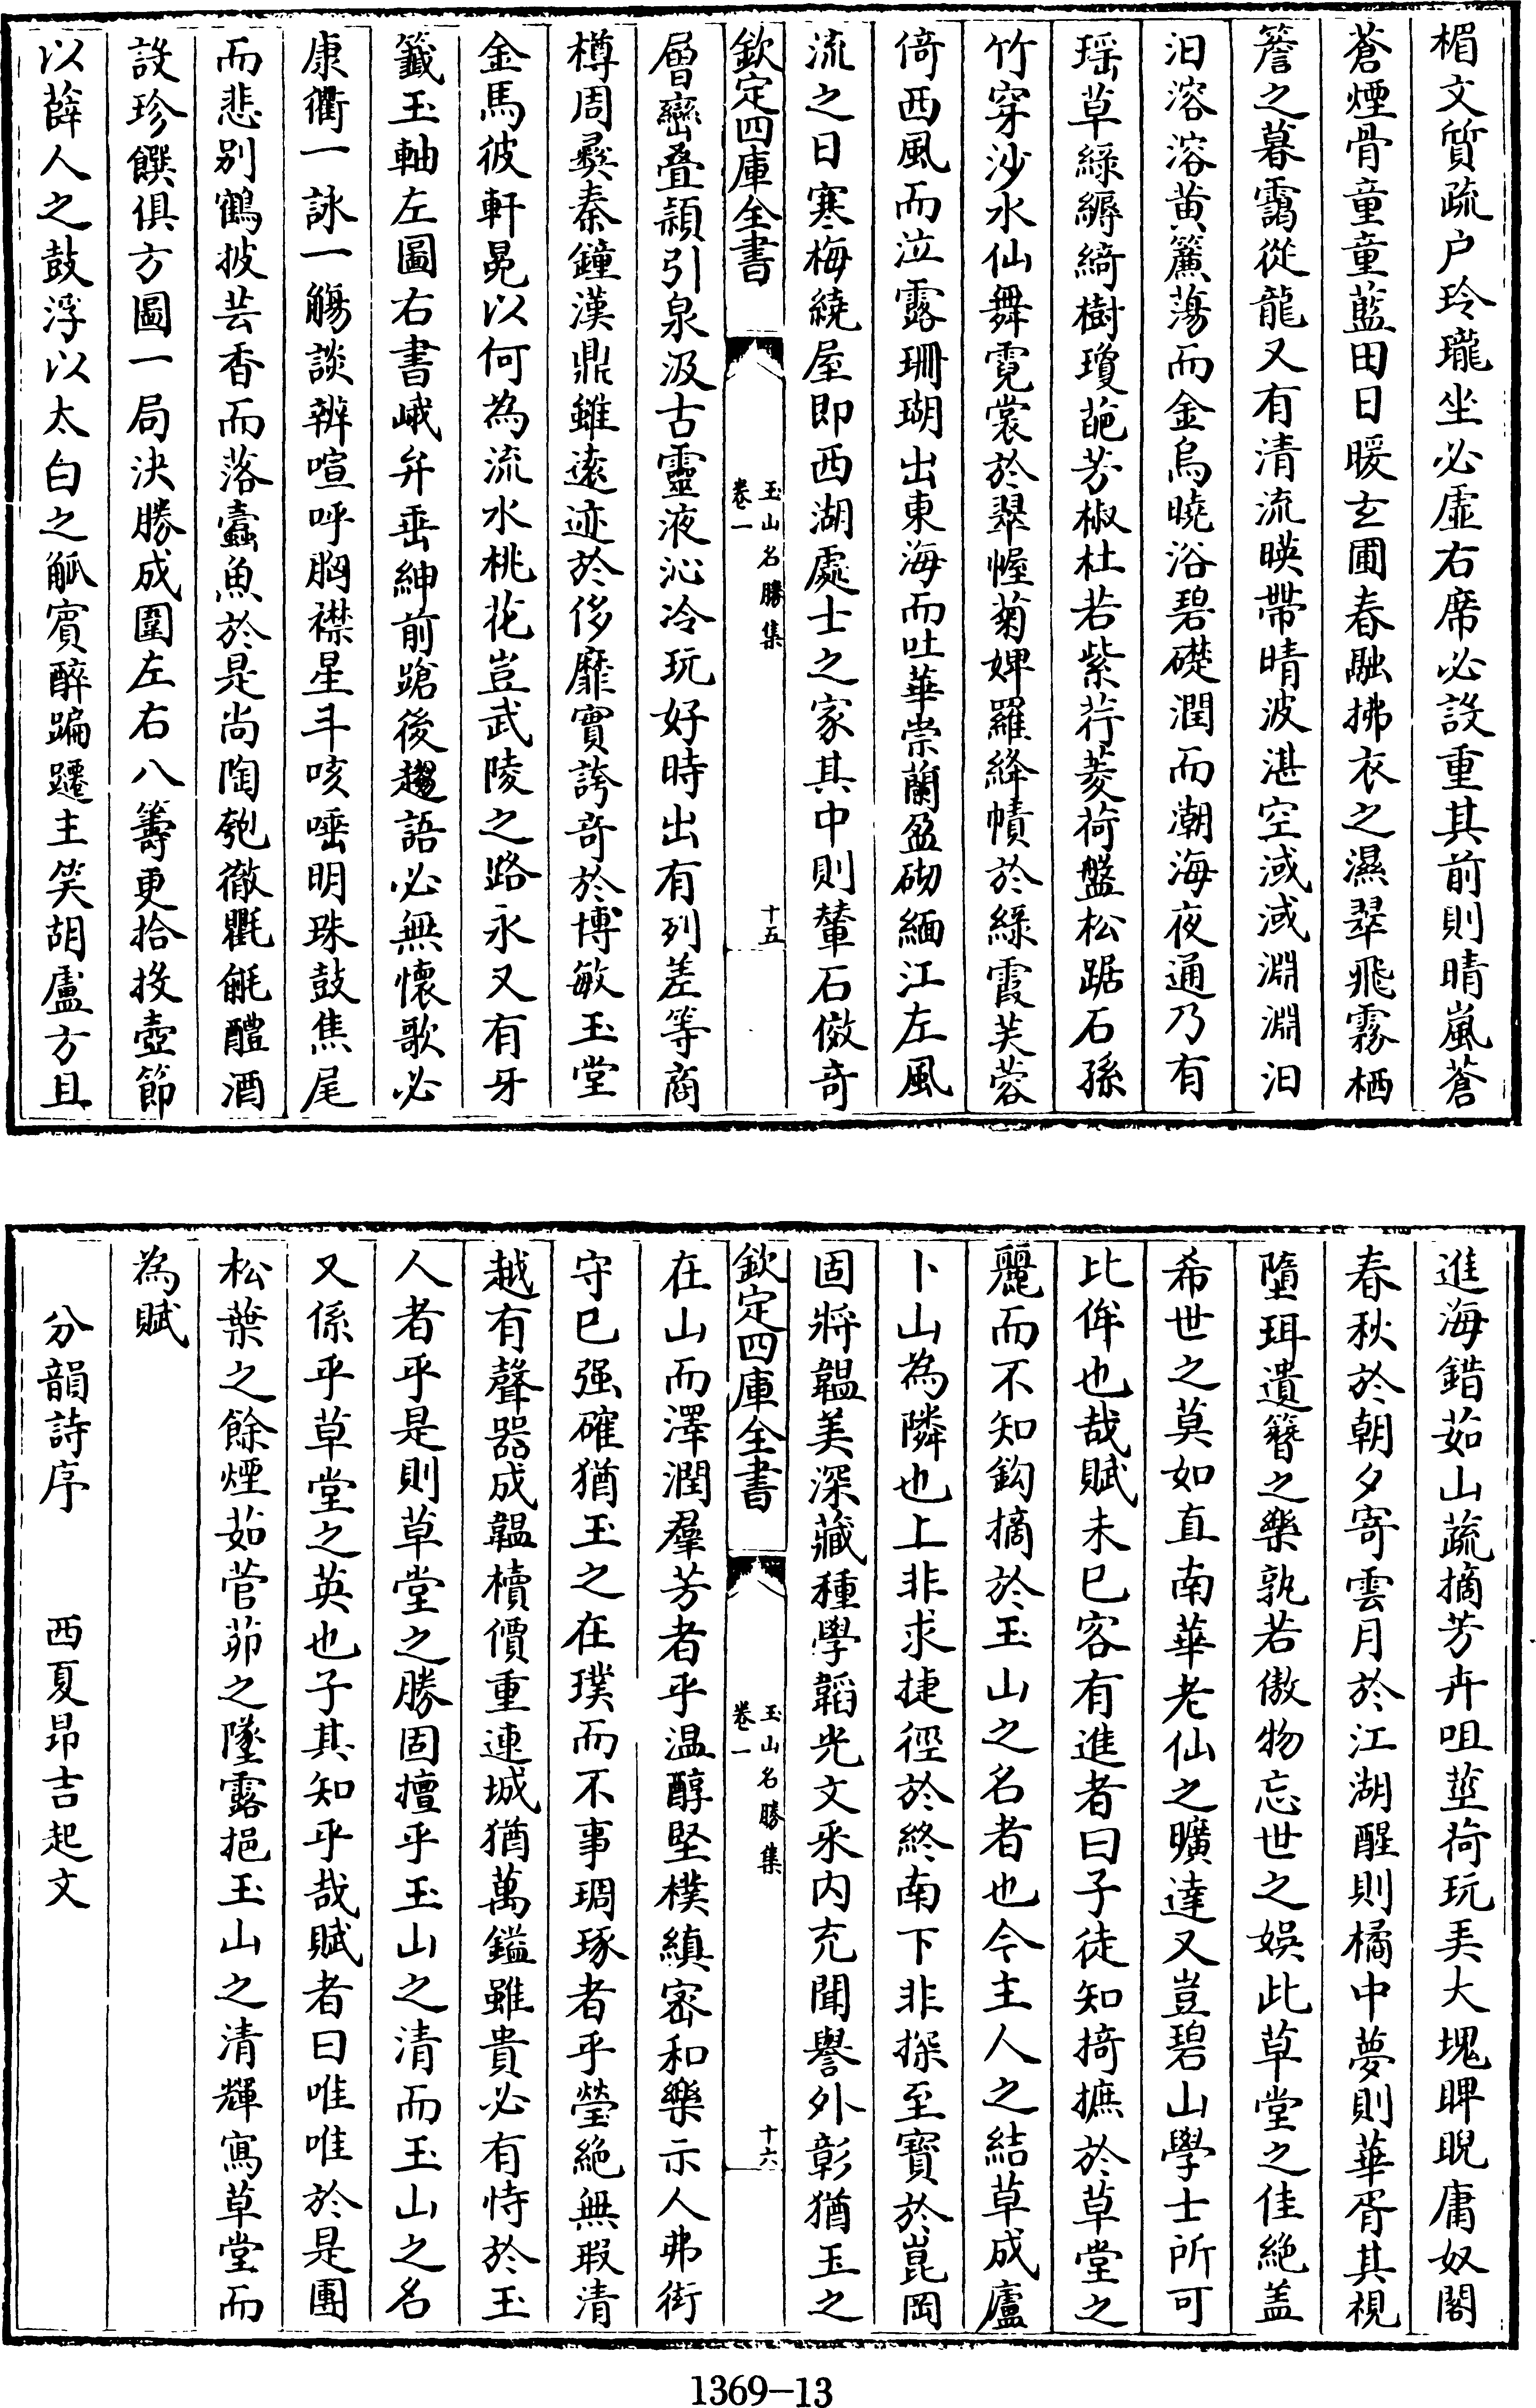 楣文質疏户玲瓏坐必虛右席必設重其前則晴嵐蒼
蒼煙骨童童藍田日暖玄圃春融拂衣之濕翠飛霧栖
簷之暮靄從龍又有清流暎帶晴波湛空淢淢淵淵汩
汩溶溶黄簾蕩而金烏曉浴碧礎潤而潮海夜通乃有
瑶草綠縟綺樹瓊葩芳椒杜若紫荇菱荷盤松踞石孫
竹穿沙水仙舞霓裳於翠幄菊婢羅絳幘於綠霞芙蓉
倚西風而泣露珊瑚出東海而吐華崇蘭盈砌緬江左風
流之日寒梅繞屋即西湖處士之家其中則輦石倣奇
欽定四庫全書
玉山名勝集
卷一
十五
層巒叠潁引泉汲古靈液沁冷玩好時出有列差等商
樽周彞秦鐘漢鼎雖遠迹於侈靡實誇奇於博敏玉堂
金馬彼軒冕以何為流水桃花豈武陵之路永又有牙
籤玉軸左圖右書峨弁垂紳前蹌後趨語必無懷歌必
康衢一詠一觴談辨喧呼胸襟星斗咳唾明珠鼓焦尾
而悲别鶴披芸香而落蠹魚於是尚陶匏徹氍毹醴酒
設珍饌俱方圖一局決勝成圍左右八籌更拾投壺節
以薛人之鼓浮以太白之觚賓醉蹁躚主笑胡盧方且
進海錯茹山蔬摘芳卉咀莖荷玩弄大塊睥睨庸奴閣
春秋於朝夕寄雲月於江湖醒則橘中夢則華胥其視
墮珥遺簪之樂孰若傲物忘世之娛此草堂之佳絶盖
希世之莫如直南華老仙之曠達又豈碧山學士所可
比侔也哉賦未已客有進者曰子徒知掎摭於草堂之
麗而不知鈎摘於玉山之名者也今主人之結草成廬
卜山為隣也上非求捷徑於終南下非探至寶於崑岡
固將韞美深藏種學韜光文采内充聞譽外彰猶玉之
欽定四庫全書
玉山名勝集
卷一
十六
在山而澤潤羣芳者乎温醇堅樸縝宻和樂示人弗衒
守已强確猶玉之在璞而不事琱琢者乎瑩絶無瑕清
越有聲器成韞櫝價重連城猶萬鎰雖貴必有恃於玉
人者乎是則草堂之勝固擅乎玉山之清而玉山之名
又係乎草堂之英也子其知乎哉賦者曰唯唯於是團
松葉之餘煙茹菅茆之墜露挹玉山之清輝寫草堂而
為賦
分韻詩序 西夏昂吉起文
1369-13